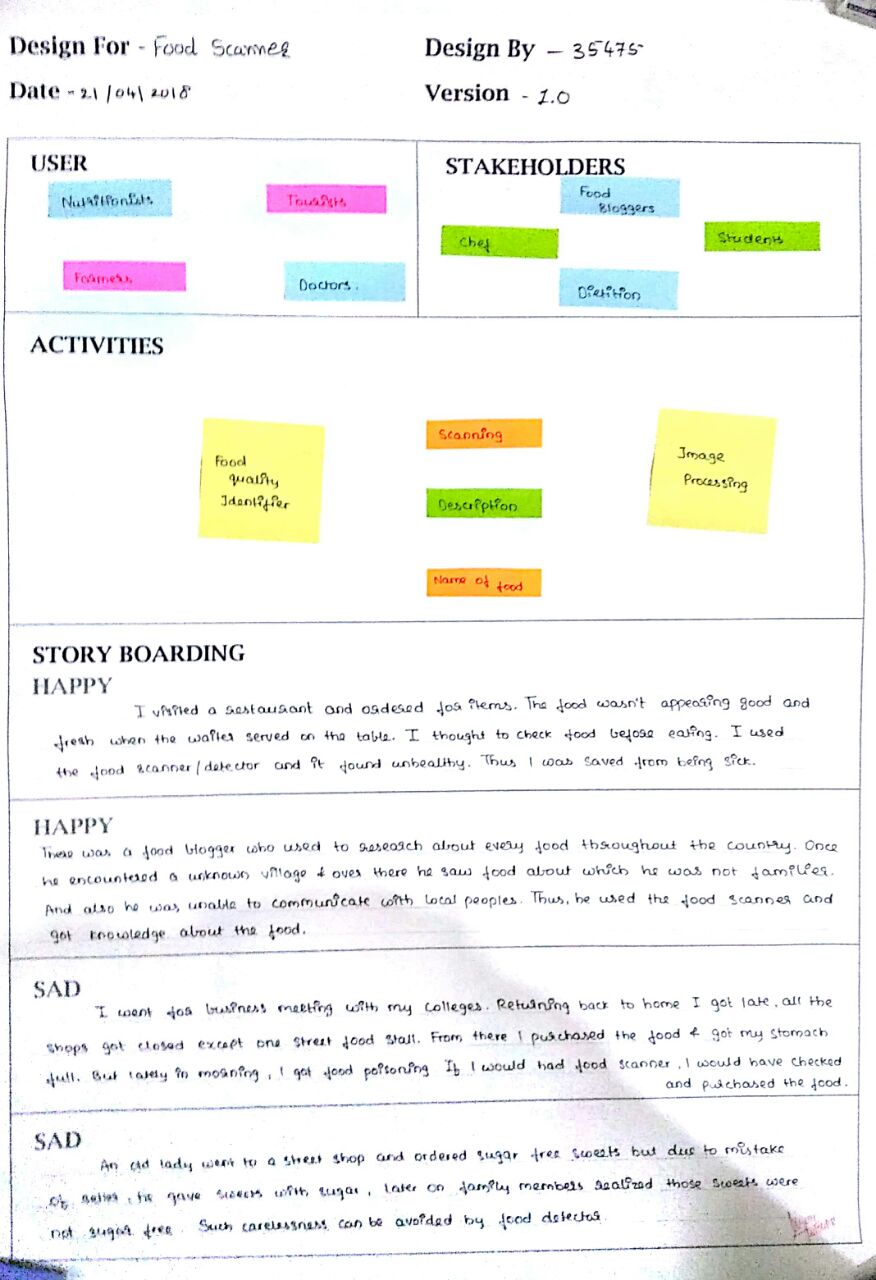 Design For - Food Scanner
Design By - 35475
Date - 21/04/2018
Version - 1.0
USER
Nutritionists
Tourists
Farmers
Doctors.
STAKEHOLDERS
Food
Bloggers
Chef
Students
Dietition
ACTIVITIES
Food
quality
Identifier
Scanning
Description
Name of food
Image
Processing
STORY BOARDING
HAPPY
I visited a restaurant and ordered for items. The food wasn't appearing good and
fresh when the waiter served on the table. I thought to check food before eating. I used
the food scanner/detector and it found unhealthy. Thus I was saved from being sick.
HAPPY
There was a food blogger who used to research about every food throughout the country. Once
he encountered a unknown village & over there he saw food about which he was not familier.
And also he was unable to communicate with local peoples. Thus, he used the food scanner and
got knowledge about the food.
SAD
I went for business meeting with my colleges. Returning back to home I got late, all the
shops got closed except one street food stall. From there I purchased the food & got my stomach
full. But lately in morning, I got food poisoning If I would had food scanner, I would have checked
and purchased the food.
SAD
An old lady went to a street shop and ordered sugar free sweets but due to mistake
of seller, he gave sweets with sugar, later on family members realized those sweets were
not sugar free. Such carelessness can be avoided by food detector.